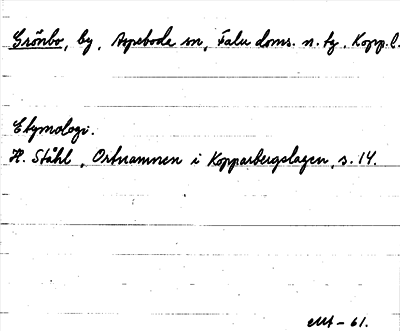 Grönbo, by, Aspeboda sn, Falu doms. n. tg. Kopp. l.
Etymologi.
H. Ståhl, Ortnamnen i Kopparbergslagen, s. 14.
- 61.